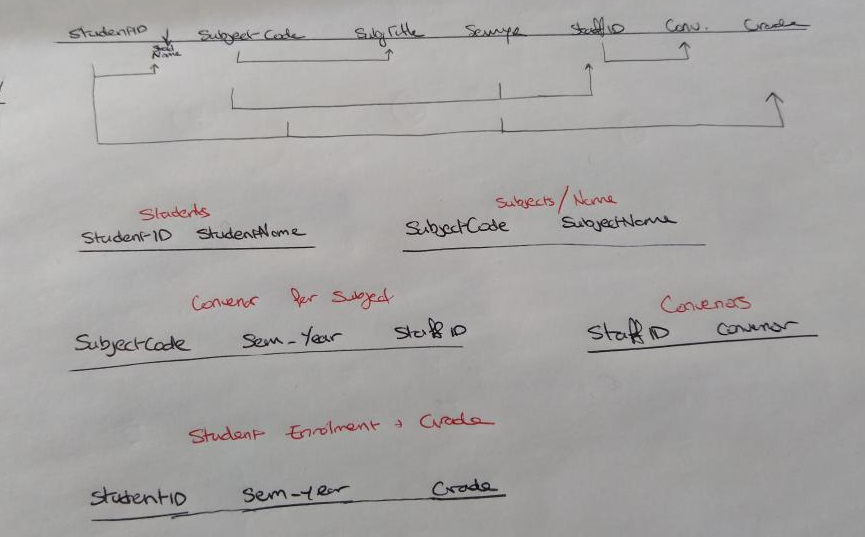 StudentID Subject-Code SubjTitle Semyr StaffID Conv. Grade
Stud Name
Students
Student-ID StudentName
Subjects/Name
SubjectCode SubjectName
Convenor per Subject
SubjectCode Sem-Year StaffID
Convenors
StaffID Convenor
Student Enrolment + Grade
StudentID Sem-Year Grade